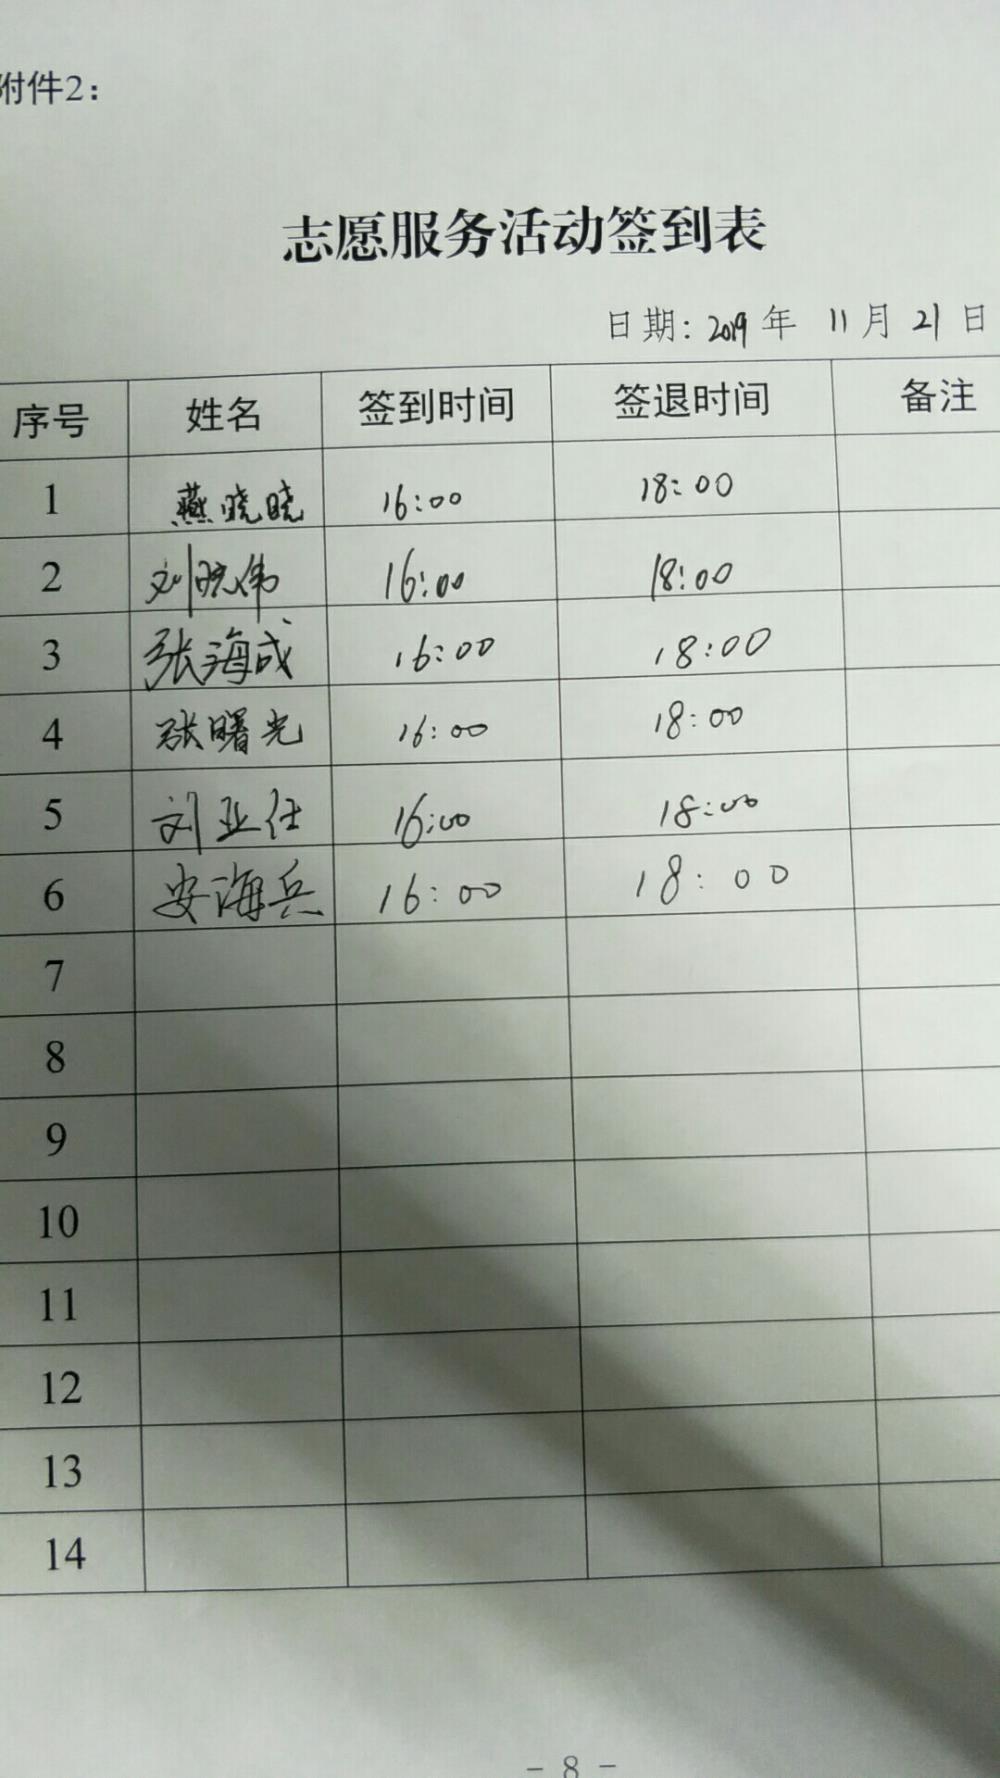 附件2：
志愿服务活动签到表
日期: 2019 年 11 月 21 日
序号 姓名 签到时间 签退时间 备注
1 燕晓晓 16:00 18:00
2 刘晓伟 16:00 18:00
3 张海成 16:00 18:00
4 张曙光 16:00 18:00
5 刘亚仕 16:00 18:00
6 安海兵 16:00 18:00
7
8
9
10
11
12
13
14
- 8 -